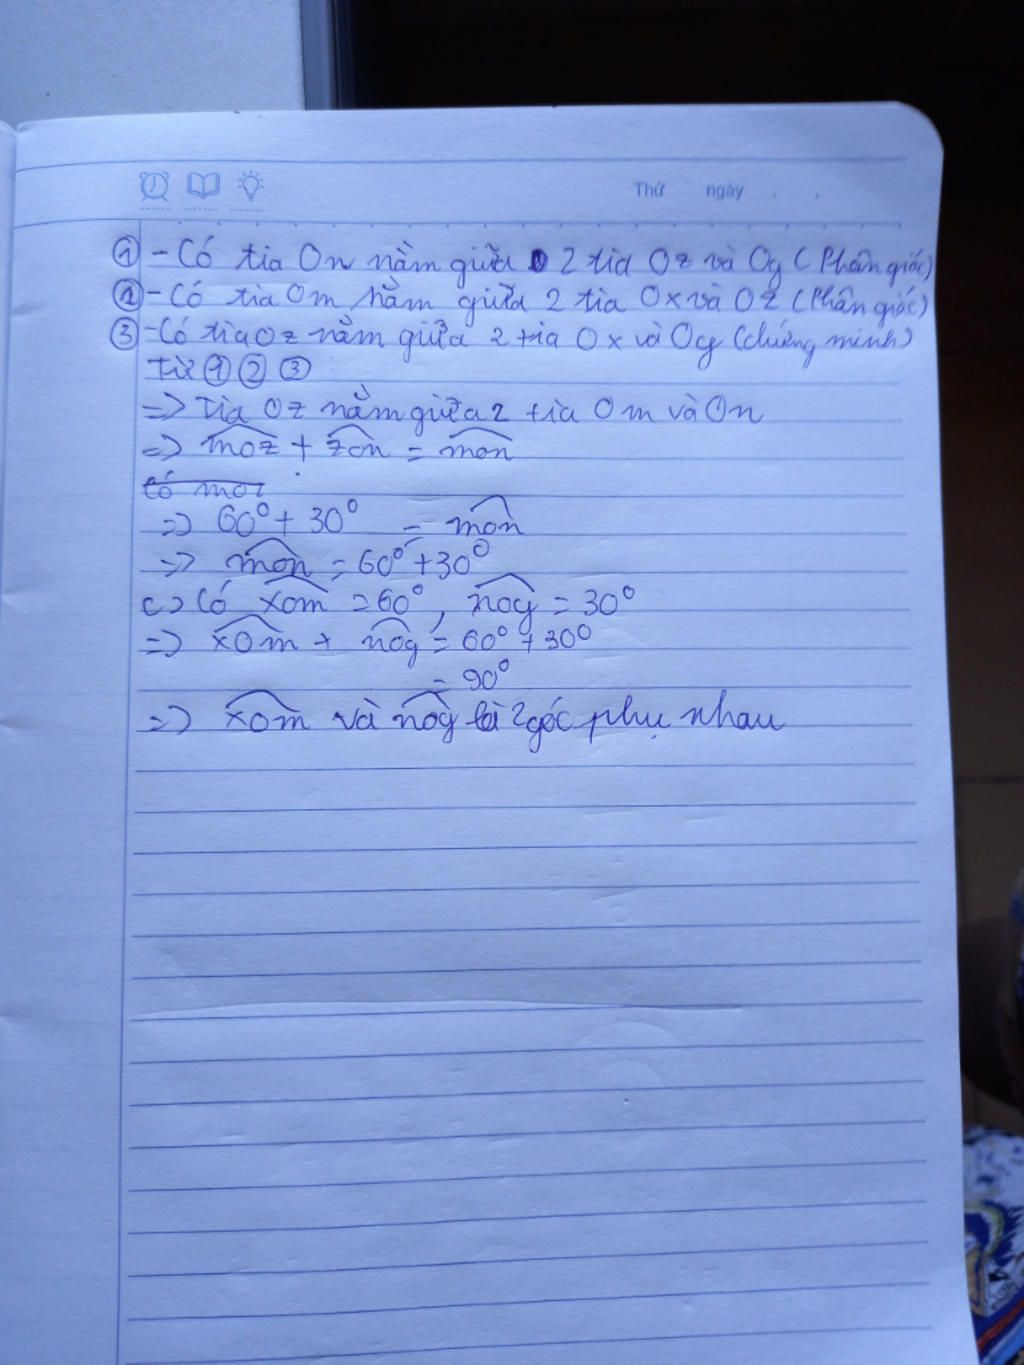 Thứ ngày
① - Có tia On nằm giữa 2 tia Oz và Oy (Phân giác)
② - Có tia Om nằm giữa 2 tia Ox và Oz (Phân giác)
③ - Có tia Oz nằm giữa 2 tia Ox và Oy (chứng minh)
Từ ① ② ③
=> Tia Oz nằm giữa 2 tia Om và On
=> moz + zon = mon
Có moz
=> 60° + 30° = mon
=> mon = 60° + 30°
c) Có xom = 60°, noy = 30°
=> xOm + noy = 60° + 30°
= 90°
=> xom và noy là 2 góc phụ nhau